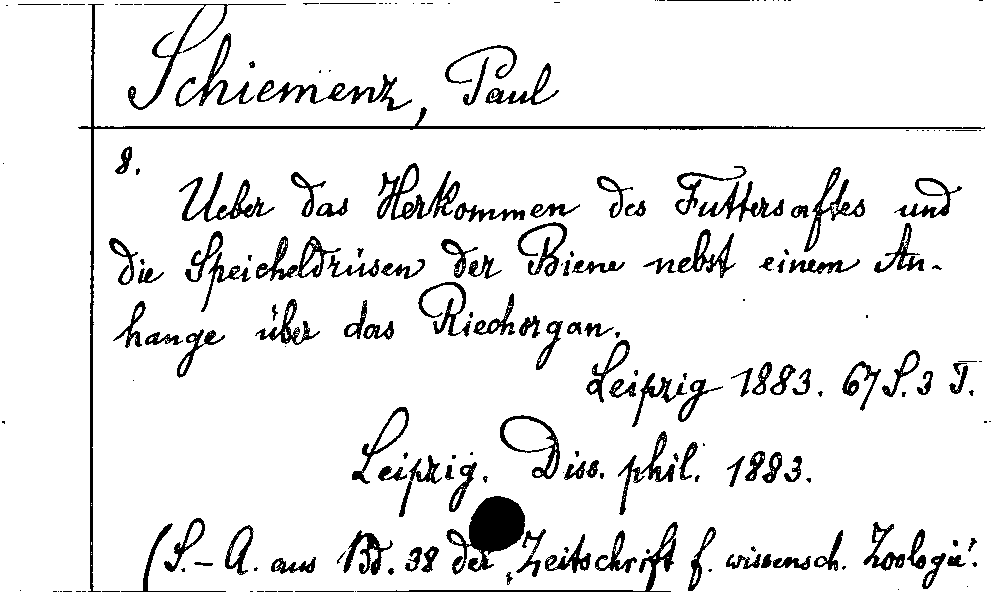 Schiemenz, Paul
8.
Ueber das Herkommen des Futtersaftes und
die Speicheldrüsen der Biene nebst einem An-
hange über das Riechorgan.
Leipzig 1883. 67 S. 3 T.
Leipzig. Diss. phil. 1883.
(S.-A. aus Bd. 38 der „Zeitschrift f. wissensch. Zoologie".